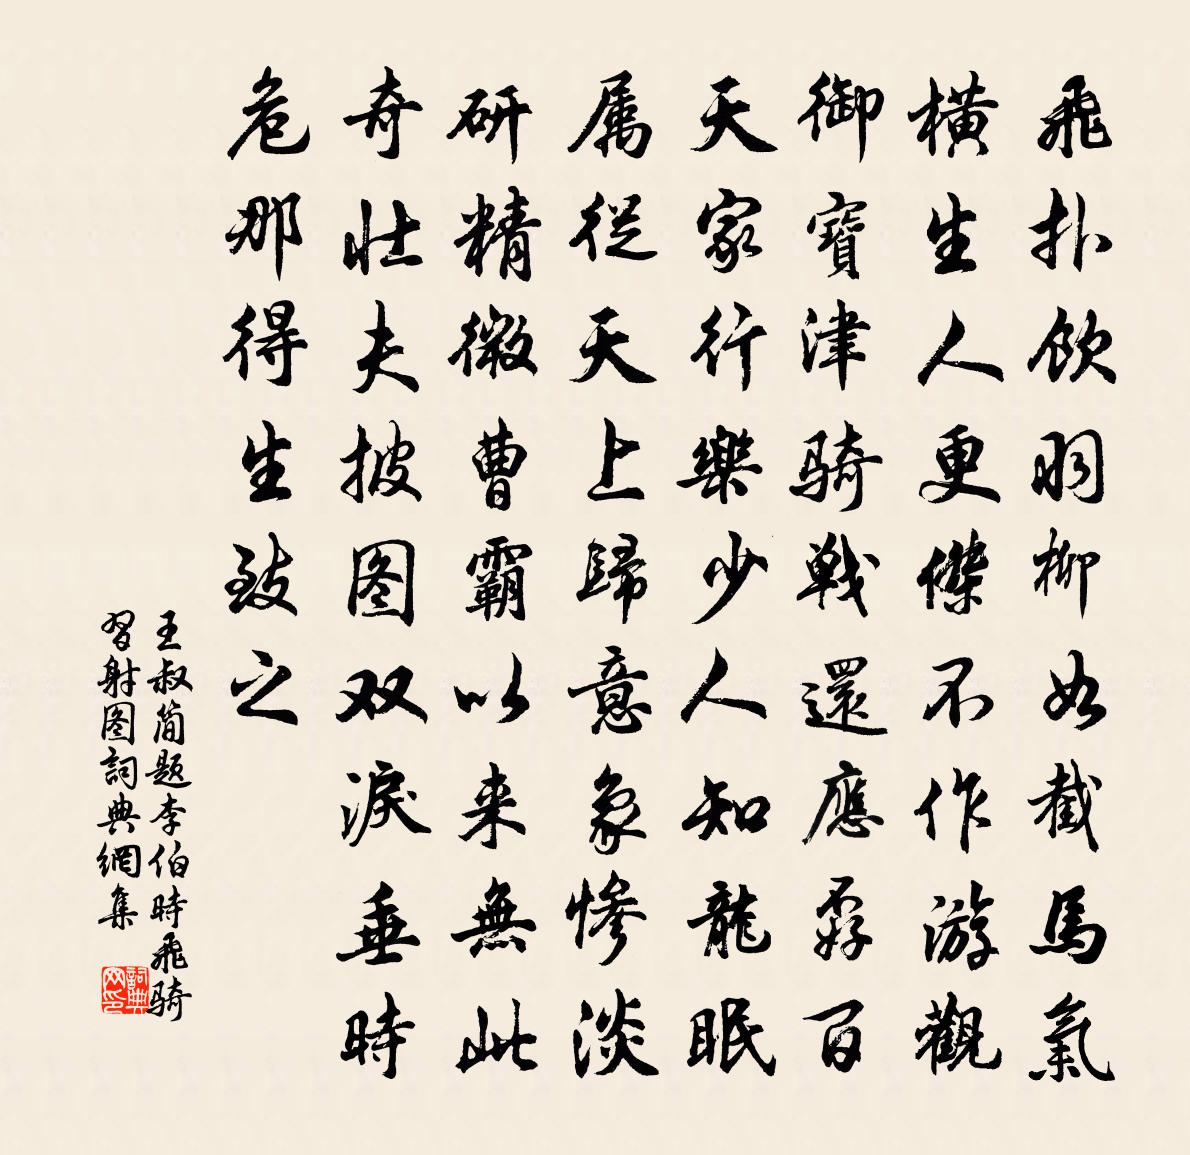 飛扑飲羽柳如截馬氣
橫生人更傑不作游觀
御寶津骑戦還應孬百
天家行樂少人知龍眠
属從天上歸意象慘淡
研精微曹霸以来無此
奇壯夫披图双淚垂時
危那得生致之
王叔简题李伯時飛骑
習射图詞典網集
詞典网印